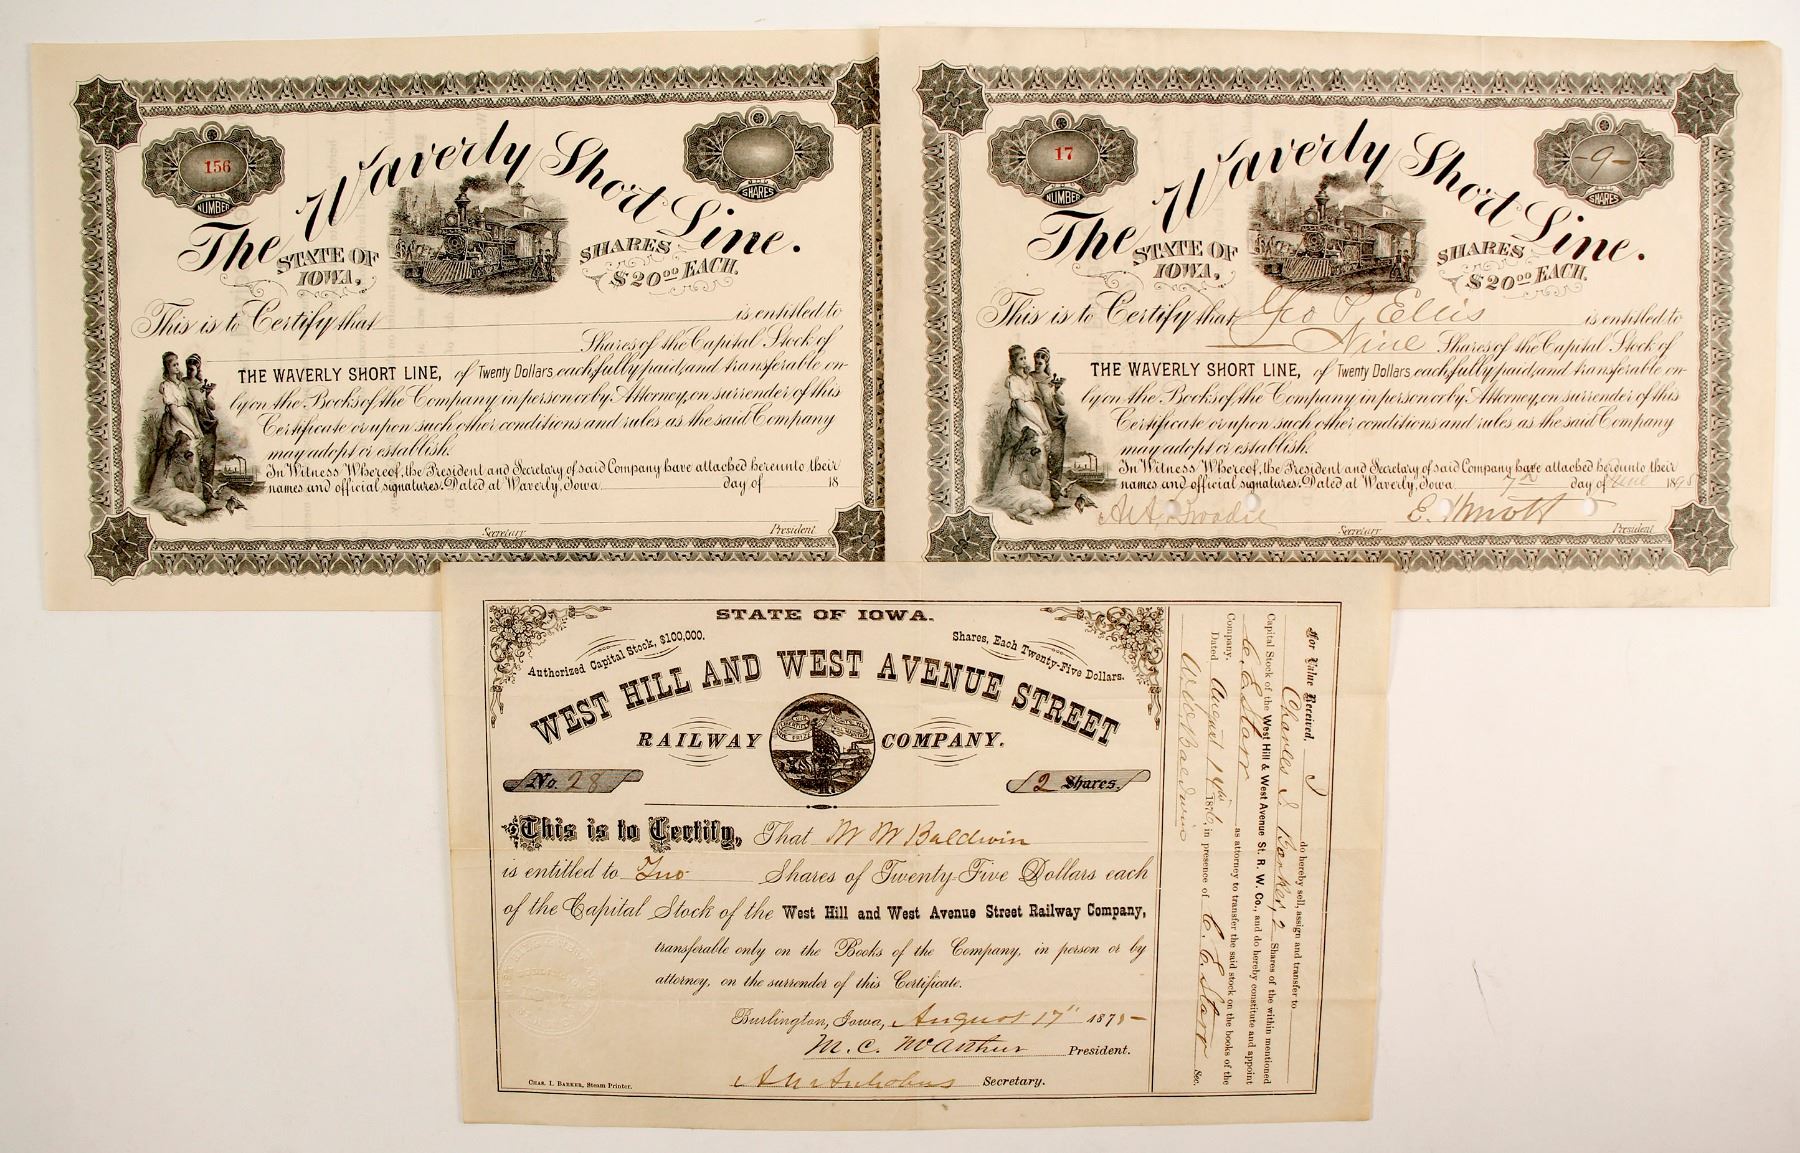 156
NUMBER
SHARES
The Waverly Short Line.
STATE OF
IOWA,
SHARES
$20.00 EACH.
This is to Certify that is entitled to
Shares of the Capital Stock of
THE WAVERLY SHORT LINE, of Twenty Dollars, each, fully paid, and transferable on-
ly on the Books of the Company in person or by Attorney, on surrender of this
Certificate or upon such other conditions and rules as the said Company
may adopt or establish.
In Witness Whereof, the President and Secretary of said Company have attached hereunto their
names and official signatures. Dated at Waverly, Iowa day of 18
Secretary President
17
NUMBER
-9-
SHARES
The Waverly Short Line.
STATE OF
IOWA,
SHARES
$20.00 EACH.
This is to Certify that Geo P. Ellis is entitled to
Nine Shares of the Capital Stock of
THE WAVERLY SHORT LINE, of Twenty Dollars, each, fully paid, and transferable on-
ly on the Books of the Company in person or by Attorney, on surrender of this
Certificate or upon such other conditions and rules as the said Company
may adopt or establish.
In Witness Whereof, the President and Secretary of said Company have attached hereunto their
names and official signatures. Dated at Waverly, Iowa 7th day of June 1895
Secretary President
STATE OF IOWA.
Authorized Capital Stock, $100,000.
Shares, Each Twenty-Five Dollars.
WEST HILL AND WEST AVENUE STREET
RAILWAY COMPANY.
No. 28
2 Shares.
This is to Certify, That W W Baldwin
is entitled to Two Shares of Twenty-Five Dollars each
of the Capital Stock of the West Hill and West Avenue Street Railway Company,
transferable only on the Books of the Company, in person or by
attorney, on the surrender of this Certificate.
Burlington, Iowa, August 17" 1875
M. C. McArthur President.
Secretary.
CHAS. I. BARKER, Steam Printer.
For Value Received, I do hereby sell, assign and transfer to
Charles I. Barker, 2 Shares of the within mentioned
Capital Stock of the West Hill & West Avenue St. R. W. Co., and do hereby constitute and appoint
C. E. Starr as attorney to transfer the said stock on the books of the
Company.
Dated August 14th 1876, in presence of C. E. Starr Sec.
W. W. Baldwin